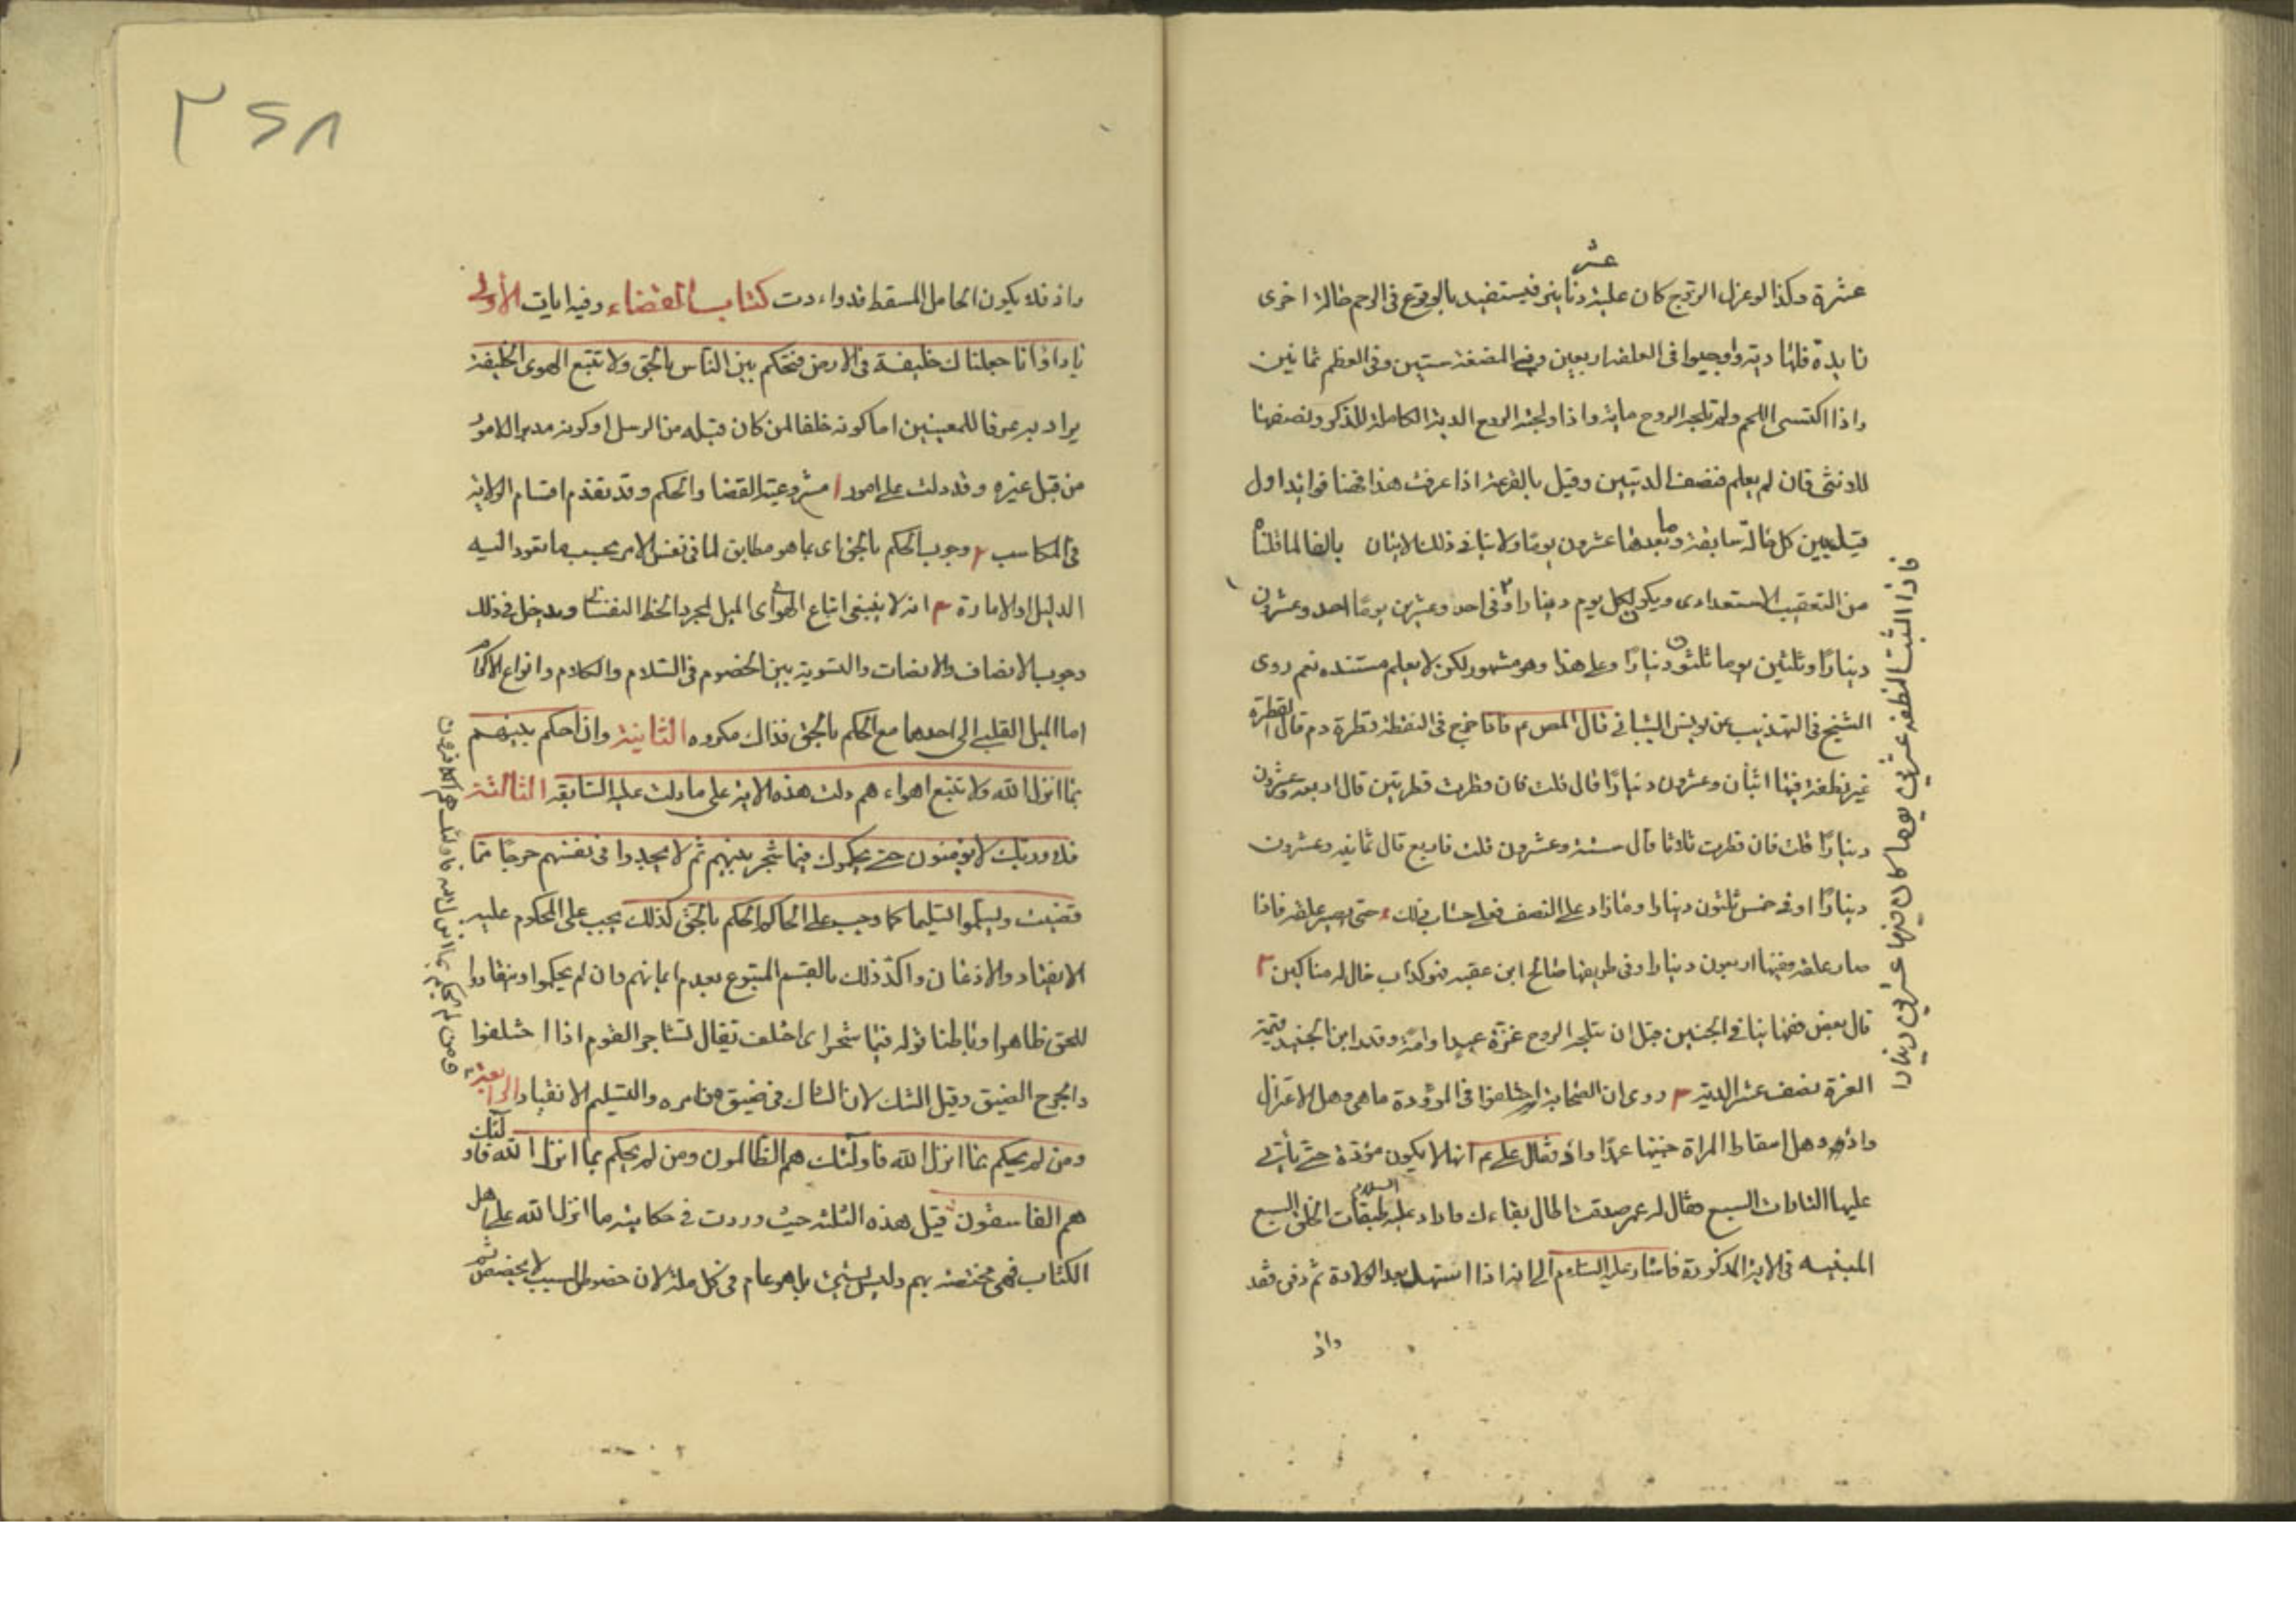 عشرة وكذا لو عزل الزوج كان عليه عشر دنانير فيستفيد بالوقوع في الرحم حالة اخرى
زايدة فلها دية واوجبوا في العلقة اربعين وفي المضغة ستين وفي العظم ثمانين
واذا اكتسى اللحم ولم تلجه الروح ماية واذا ولجته الروح الدية الكاملة للذكر ونصفها
للانثى فان لم يعلم فنصف الديتين وقيل بالقرعة اذا عرفت هذا فهنا فوائد اول
قيل بين كل حالة سابقة وما بعدها عشرون يوما ولا ينافي ذلك الاتيان بالفا لما قلناه
من التعقيب الاستعدادى ويكون لكل يوم دينارا وفى احد وعشرين يوما احد وعشرون
دينارا وثلثين يوما ثلثون دينارا وعلى هذا وهو مشهور لكن لا يعلم مستنده نعم روى
الشيخ في التهذيب عن يونس الشيبانى قال المص م فاذا خرج في النفطة قطرة دم قال القطرة
عشر نطفة فيها اثنان وعشرون دينارا قال قلت فان قطرت قطرتين قال اربعة وعشرون
دينارا قلت فان قطرت ثلاثا قال ستة وعشرون قلت فاربع قال ثمانية وعشرون
دينارا او في خمس ثلثون دينارا وما زاد على النصف فعلى حساب ذلك حتى يصير علقة فاذا
صار علقة ففيها اربعون دينارا وفى طريقها صالح ابن عقبه هو كذاب غال له مناكير ٢
قال بعض فقهائنا في الجنين قبل ان تلجه الروح غرة عبد او امة وقدر ابن الجنيد قيمة
الغرة نصف عشر الدية ٣ روى ان الصحابة اختلفوا فى الموؤدة ما هى وهل الاعتزال
واذ وهل اسقاط المراة جنينها عمدا واد فقال على م انها لا يكون موؤدة حتى يأتى
عليها التارات السبع فقال له عمر صدقت اطال بقاءك فاراد عليه السلام طبقات الخلق السبع
المبنيه فى الاية المذكورة فاشار عليه السلام الى انه اذا استهل بعد الولادة ثم دفن فقد
واذ
فاذا لبثت النطفة عشرين يوما كان فيها عشرين دينارا
٣٢٨
واذ فلا يكون الحامل المسقط قد واءدت كتاب القضاء وفيه ايات الأولى
يا داود انا جعلناك خليفة في الارض فتحكم بين الناس بالحق ولا تتبع الهوى الخليفة
يراد به عرفا للمعنيين اما كونه خلفا لمن كان قبله من الرسل او كونه مدبر الامور
من قبل غيره وقد دلت على امور ا مشروعية القضا والحكم وقد تقدم اقسام الولاية
في المكاسب ٢ وجوب الحكم بالحق اى بما هو مطابق لما فى نفس الامر بحسب ما تقود اليه
الدليل او الامارة ٣ انه لا ينبغى اتباع الهوى اى الميل لمجرد الحظ النفسانى ويدخل فى ذلك
وجوب الانصاف والانصات والتسوية بين الخصوم فى السلام والكلام وانواع الاكرام
اما الميل القلبى الى احدهما مع الحكم بالحق فذاك مكروه الثانية وان احكم بينهم
بما انزل الله ولا تتبع اهواءهم دلت هذه الاية على ما دلت عليه السابقه الثالثة
فلا وربك لا يؤمنون حتى يحكموك فيما شجر بينهم ثم لا يجدوا فى نفسهم حرجا مما
قضيت ويسلموا تسليما كما وجب على الحاكم الحكم بالحق كذلك يجب على المحكوم عليه
الانقياد والاذعان واكد ذلك بالقسم المتبوع بعدم ايمانهم وان لم يحكموا وينقادوا
للحق ظاهرا وباطنا قوله فيما شجر اى اختلف تقال تشاجر القوم اذا اختلفوا
والحرج الضيق وقيل الشك لان الشاك فى ضيق من امره والتسليم الانقياد الرابعة
ومن لم يحكم بما انزل الله فاولئك هم الظالمون ومن لم يحكم بما انزل الله فاولئك
هم الفاسقون قيل هذه الثلثة حيث وردت في حكاية ما انزل الله على اهل
الكتاب فهى مختصة بهم وليس بشئ بل هو عام فى كل ملة لان خصوص السبب لا يخصص ثم
ومن لم يحكم بما انزل الله فاولئك هم الكافرون